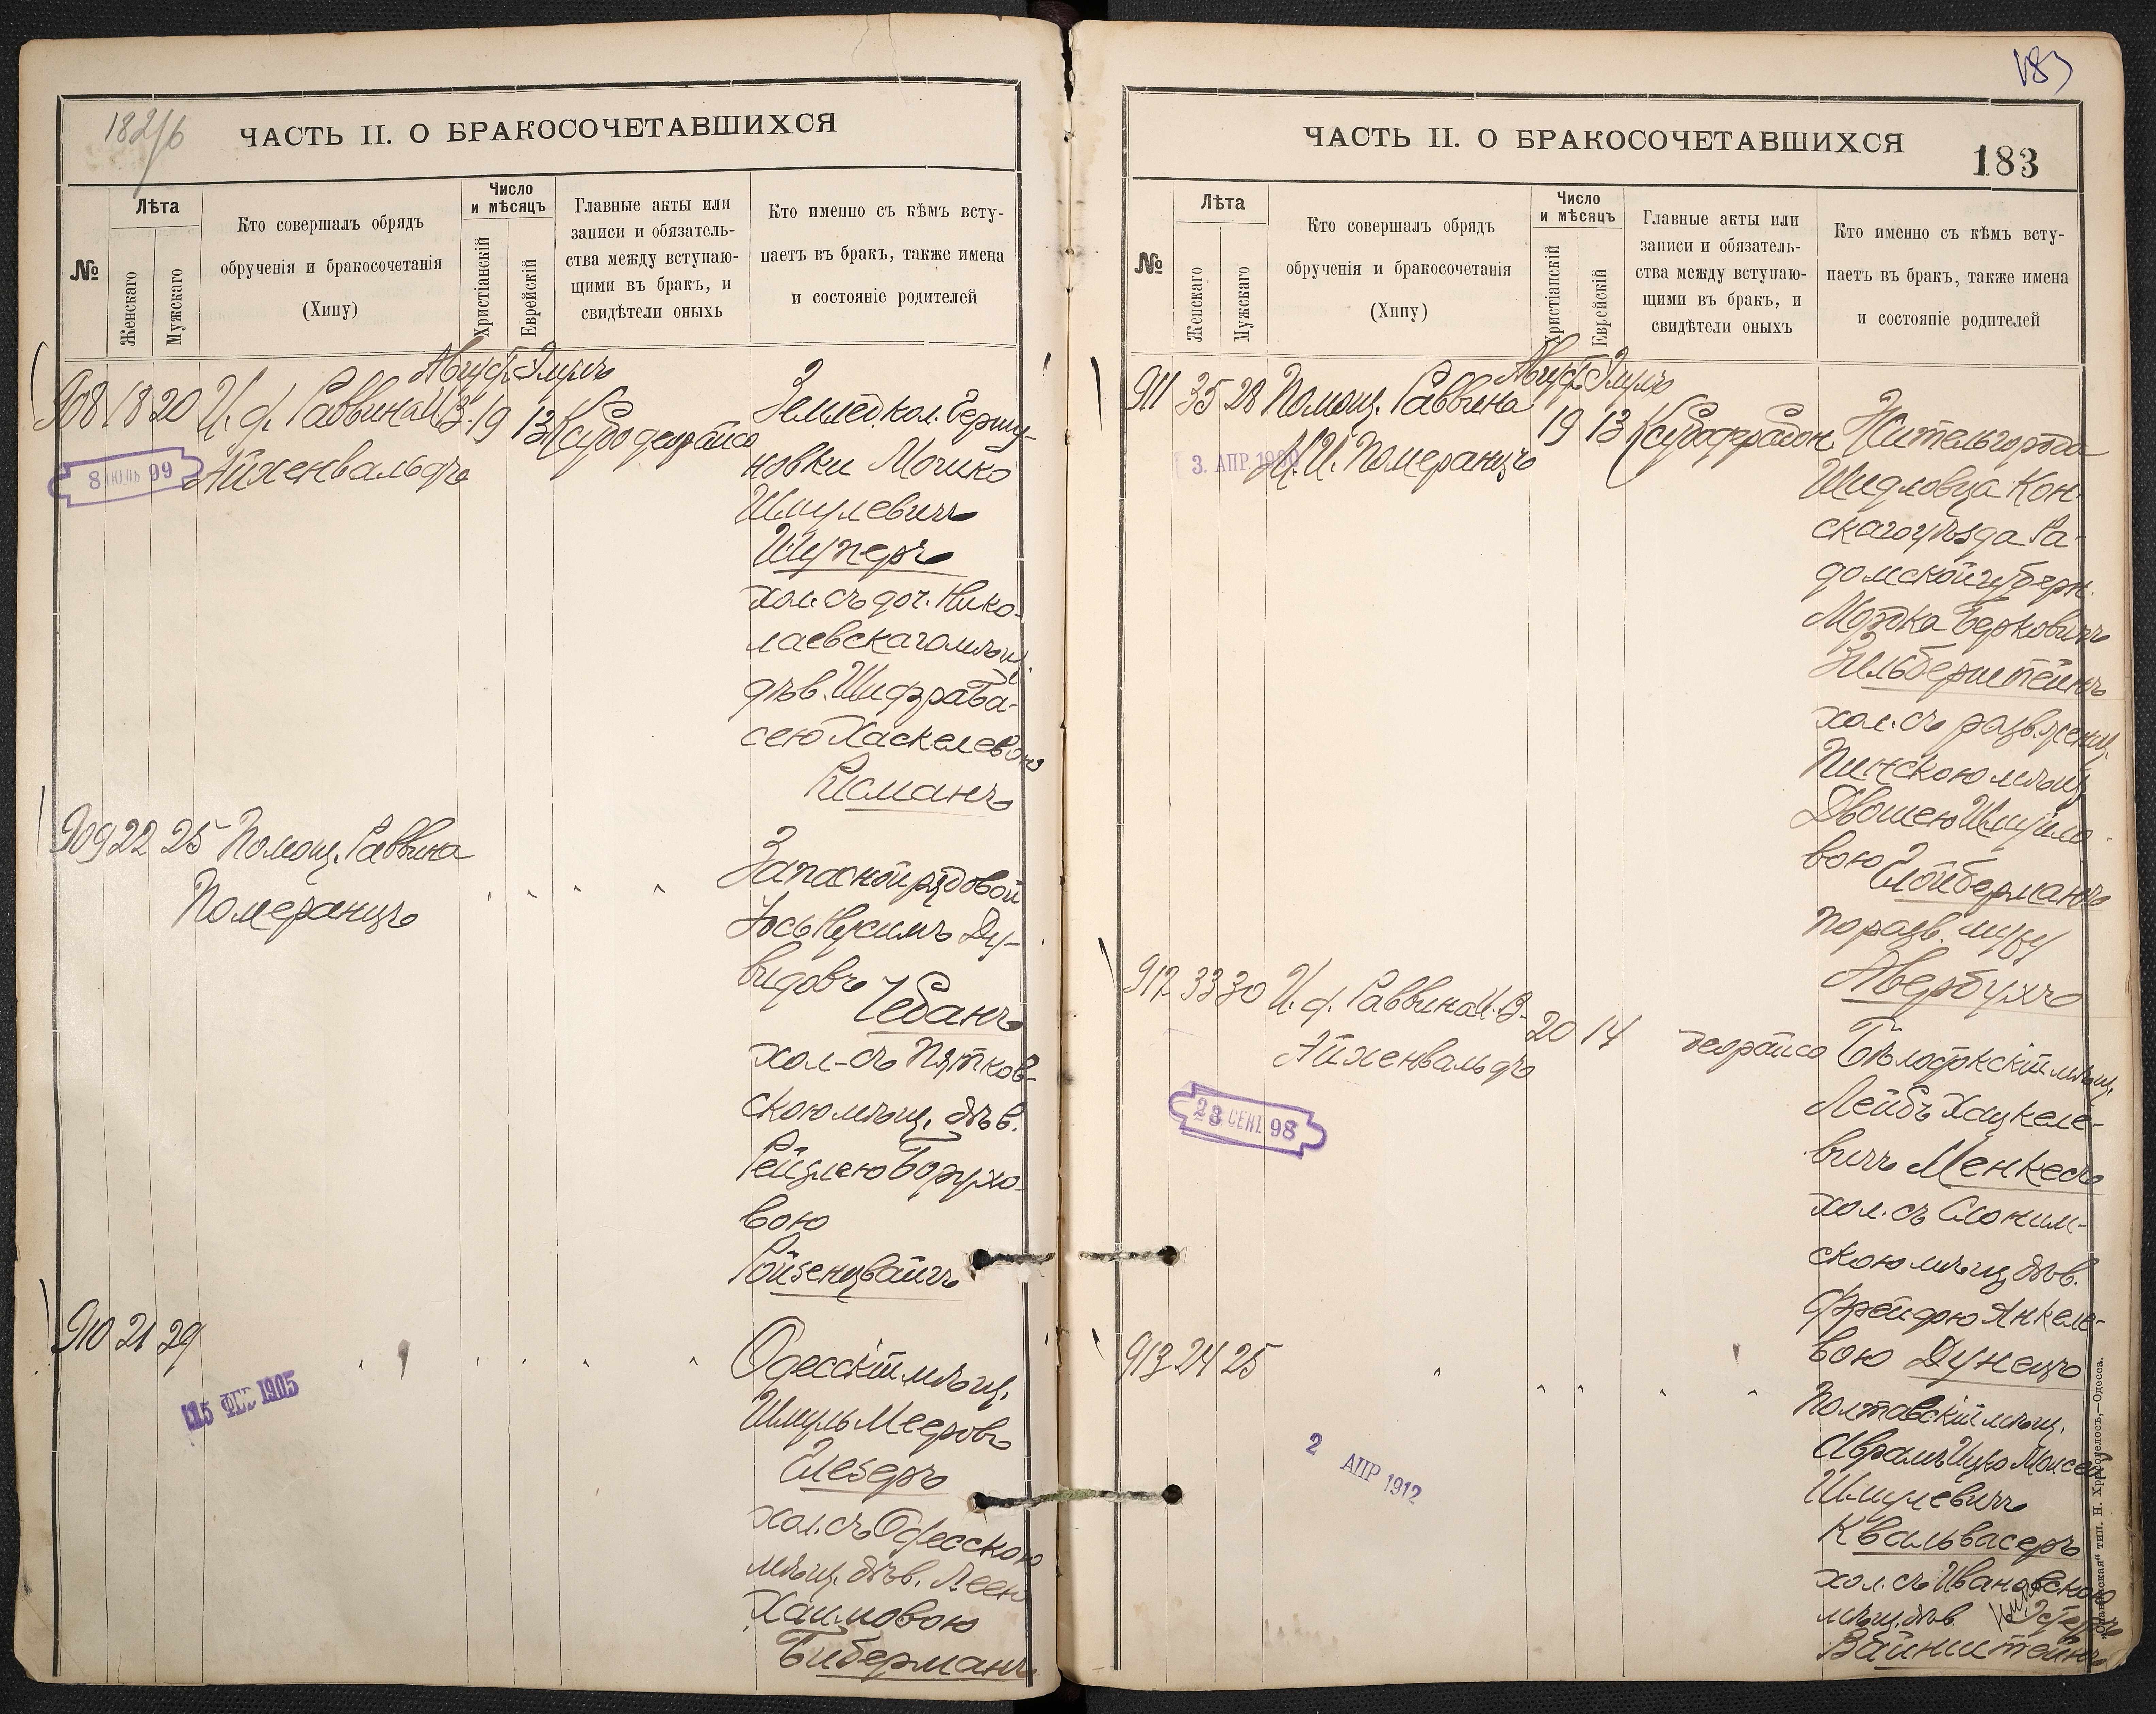 182/б
ЧАСТЬ II. О БРАКОСОЧЕТАВШИХСЯ
№
Лѣта
Женскаго
Мужскаго
Кто совершалъ обрядъ
обрученія и бракосочетанія
(Хипу)
Число
и мѣсяцъ
Христіанскій
Еврейскій
Главные акты или
записи и обязатель-
ства между вступаю-
щими въ бракъ, и
свидѣтели оныхъ
Кто именно съ кѣмъ всту-
паетъ въ бракъ, также имена
и состояніе родителей
Август. Элулъ
908 18 20 И. ф. Раввина И.З. 19 13
Айхенвальдъ
8 ІЮЛЬ 99
Землед. кол. Беришу-
новки Мошко
Шмулевичъ
Шуперъ
хол. съ доч. Нико-
лаевскаго мѣщ.
дѣв. Шифра Ба-
сею Хаскелевою
Рисманъ
909 22 25 Помощ. Раввина
Померанцъ
Запасной рядовой
Іось Нусимъ Ду-
видовъ Чебанъ
хол. съ Пятков-
скою мѣщ. дѣв.
Рейзлею Борухо-
вою
Ройзенцвайгъ
910 21 29
15 ФЕВ 1905
Одесскій мѣщ.
Шмуль Мееровъ
Глезеръ
хол. съ Одесскою
мѣщ. дѣв. Леею
Хаимовою
Биберманъ
183
ЧАСТЬ II. О БРАКОСОЧЕТАВШИХСЯ
183
№
Лѣта
Женскаго
Мужскаго
Кто совершалъ обрядъ
обрученія и бракосочетанія
(Хипу)
Число
и мѣсяцъ
Христіанскій
Еврейскій
Главные акты или
записи и обязатель-
ства между вступаю-
щими въ бракъ, и
свидѣтели оныхъ
Кто именно съ кѣмъ всту-
паетъ въ бракъ, также имена
и состояніе родителей
Август. Элулъ
911 35 28 Помощ. Раввина 19 13
И. Померанцъ
3. АПР. 1900
Житель города
Шидловца Кон-
скаго уѣзда Ра-
домской губерн.
Мордка Берковичъ
Зильберштейнъ
хол. съ разв. женщ.
Пинскою мѣщ.
Двошею Шмуило-
вою Глойберманъ
по разв. мужу
Авербухъ
912 33 30 И. ф. Раввина И. З. 20 14 деорайсо
Айхенвальдъ
23 СЕНТ 98
Бѣлостокскій мѣщ.
Лейбъ Хацкеле-
вичъ Менкесъ
хол. съ Слоним-
скою мѣщ. дѣв.
Фрейдою Янкеле-
вою Дунецъ
913 24 25
2 АПР 1912
Полтавскій мѣщ.
Абрамъ Ицко Моисей
Шмулевичъ
Квальвасеръ
хол. съ Ивановскою
мѣщ. дѣв. Эстер
Вайнштейнъ
„Славянская“ тип. Н. Хрисогелосъ,—Одесса.